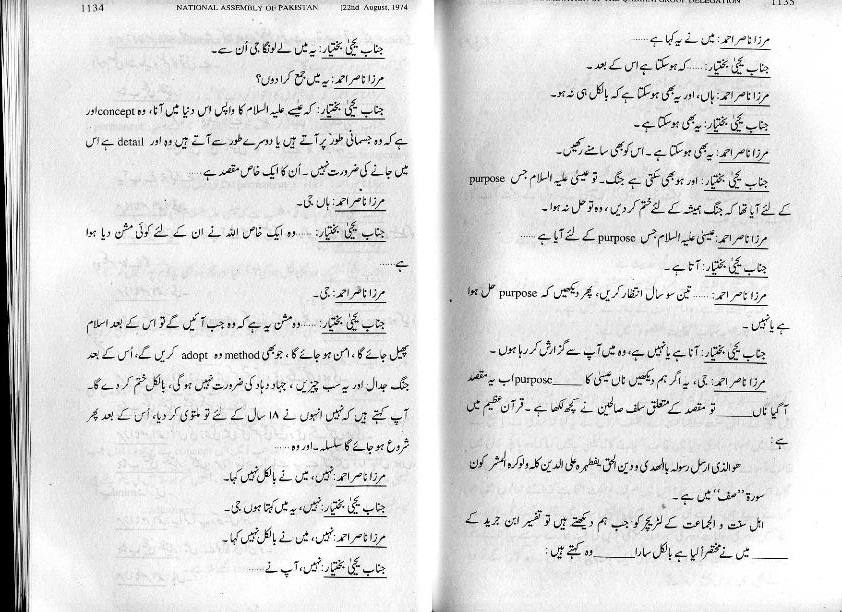 1134 NATIONAL ASSEMBLY OF PAKISTAN [22nd August, 1974
جناب یحییٰ بختیار: یہ میں لے لونگا جی اُن سے۔
مرزا ناصر احمد: یہ میں جمع کرا دوں؟
جناب یحییٰ بختیار: کہ عیسے علیہ السلام کا واپس اس دنیا میں آنا، وہ concept اور
ہے کہ وہ جسمانی طور پر آتے ہیں یا دوسرے طور سے آتے ہیں وہ اور detail ہے اس
میں جانے کی ضرورت نہیں۔ اُن کا ایک خاص مقصد ہے،
مرزا ناصر احمد: ہاں جی۔
جناب یحییٰ بختیار: ......وہ ایک خاص اللہ نے ان کے لئے کوئی مشن دیا ہوا
ہے......
مرزا ناصر احمد: جی۔
جناب یحییٰ بختیار: ......وہ مشن یہ ہے کہ وہ جب آئیں گے تو اس کے بعد اسلام
پھیل جائے گا، امن ہو جائے گا، جو بھی method وہ adopt کریں گے، اُس کے بعد
جنگ جدال اور یہ سب چیزیں، جہاد وہاد کی ضرورت نہیں ہو گی، بالکل ختم کر دے گا۔
آپ کہتے ہیں کہ نہیں انہوں نے ۱۸ سال کے لئے تو ملتوی کر دیا، اُس کے بعد پھر
شروع ہو جائے گا سلسلہ۔ اور وہ......
مرزا ناصر احمد: نہیں، میں نے بالکل نہیں کہا۔
جناب یحییٰ بختیار: نہیں، یہ میں کہتا ہوں جی۔
مرزا ناصر احمد: نہیں، میں نے بالکل نہیں کہا۔
جناب یحییٰ بختیار: نہیں، آپ نے......
GROUP DELEGATION 1135
مرزا ناصر احمد: میں نے یہ کہا ہے......
جناب یحییٰ بختیار: ......کہ ہو سکتا ہے اس کے بعد۔
مرزا ناصر احمد: ہاں، اور یہ بھی ہو سکتا ہے کہ بالکل ہی نہ ہو۔
جناب یحییٰ بختیار: یہ بھی ہو سکتا ہے۔
مرزا ناصر احمد: یہ بھی ہو سکتا ہے۔ اس کو بھی سامنے رکھیں۔
جناب یحییٰ بختیار: اور ہو بھی سکتی ہے جنگ۔ تو عیسیٰ علیہ السلام جس purpose
کے لئے آیا تھا کہ جنگ ہمیشہ کے لئے ختم کر دیں، وہ تو حل نہ ہوا۔
مرزا ناصر احمد: عیسیٰ علیہ السلام جس purpose کے لئے آیا ہے......
جناب یحییٰ بختیار: آتا ہے۔
مرزا ناصر احمد: ......تین سو سال انتظار کریں، پھر دیکھیں کہ purpose حل ہوا
ہے یا نہیں۔
جناب یحییٰ بختیار: آتا ہے یا نہیں ہے، وہ میں آپ سے گزارش کر رہا ہوں۔
مرزا ناصر احمد: جی، یہ اگر ہم دیکھیں ناں عیسیٰ کا ____ purpose اب یہ مقصد
آ گیا ناں ____ تو مقصد کے متعلق سلف صالحین نے کچھ لکھا ہے۔ قرآن عظیم میں
ہے:
ھو الذی ارسل رسولہ بالھدی و دین الحق یظھرہ علی الدین کلہ ولو کرہ المشرکون
سورۃ "صف" میں ہے۔
اہل سنت و الجماعت کے لٹریچر کو جب ہم دیکھتے ہیں تو تفسیر ابن جریر کے
____ میں نے مختصراً لیا ہے بالکل سارا ____ وہ کہتے ہیں: